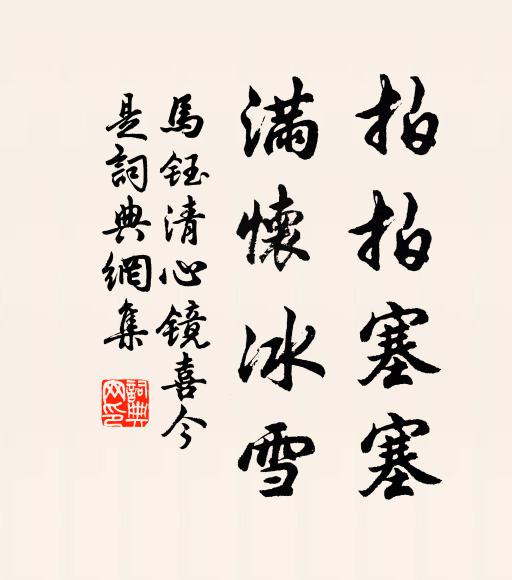 拍拍塞塞
滿懷冰雪
馬鈺清心镜喜今
是詞典網集
詞典
网印